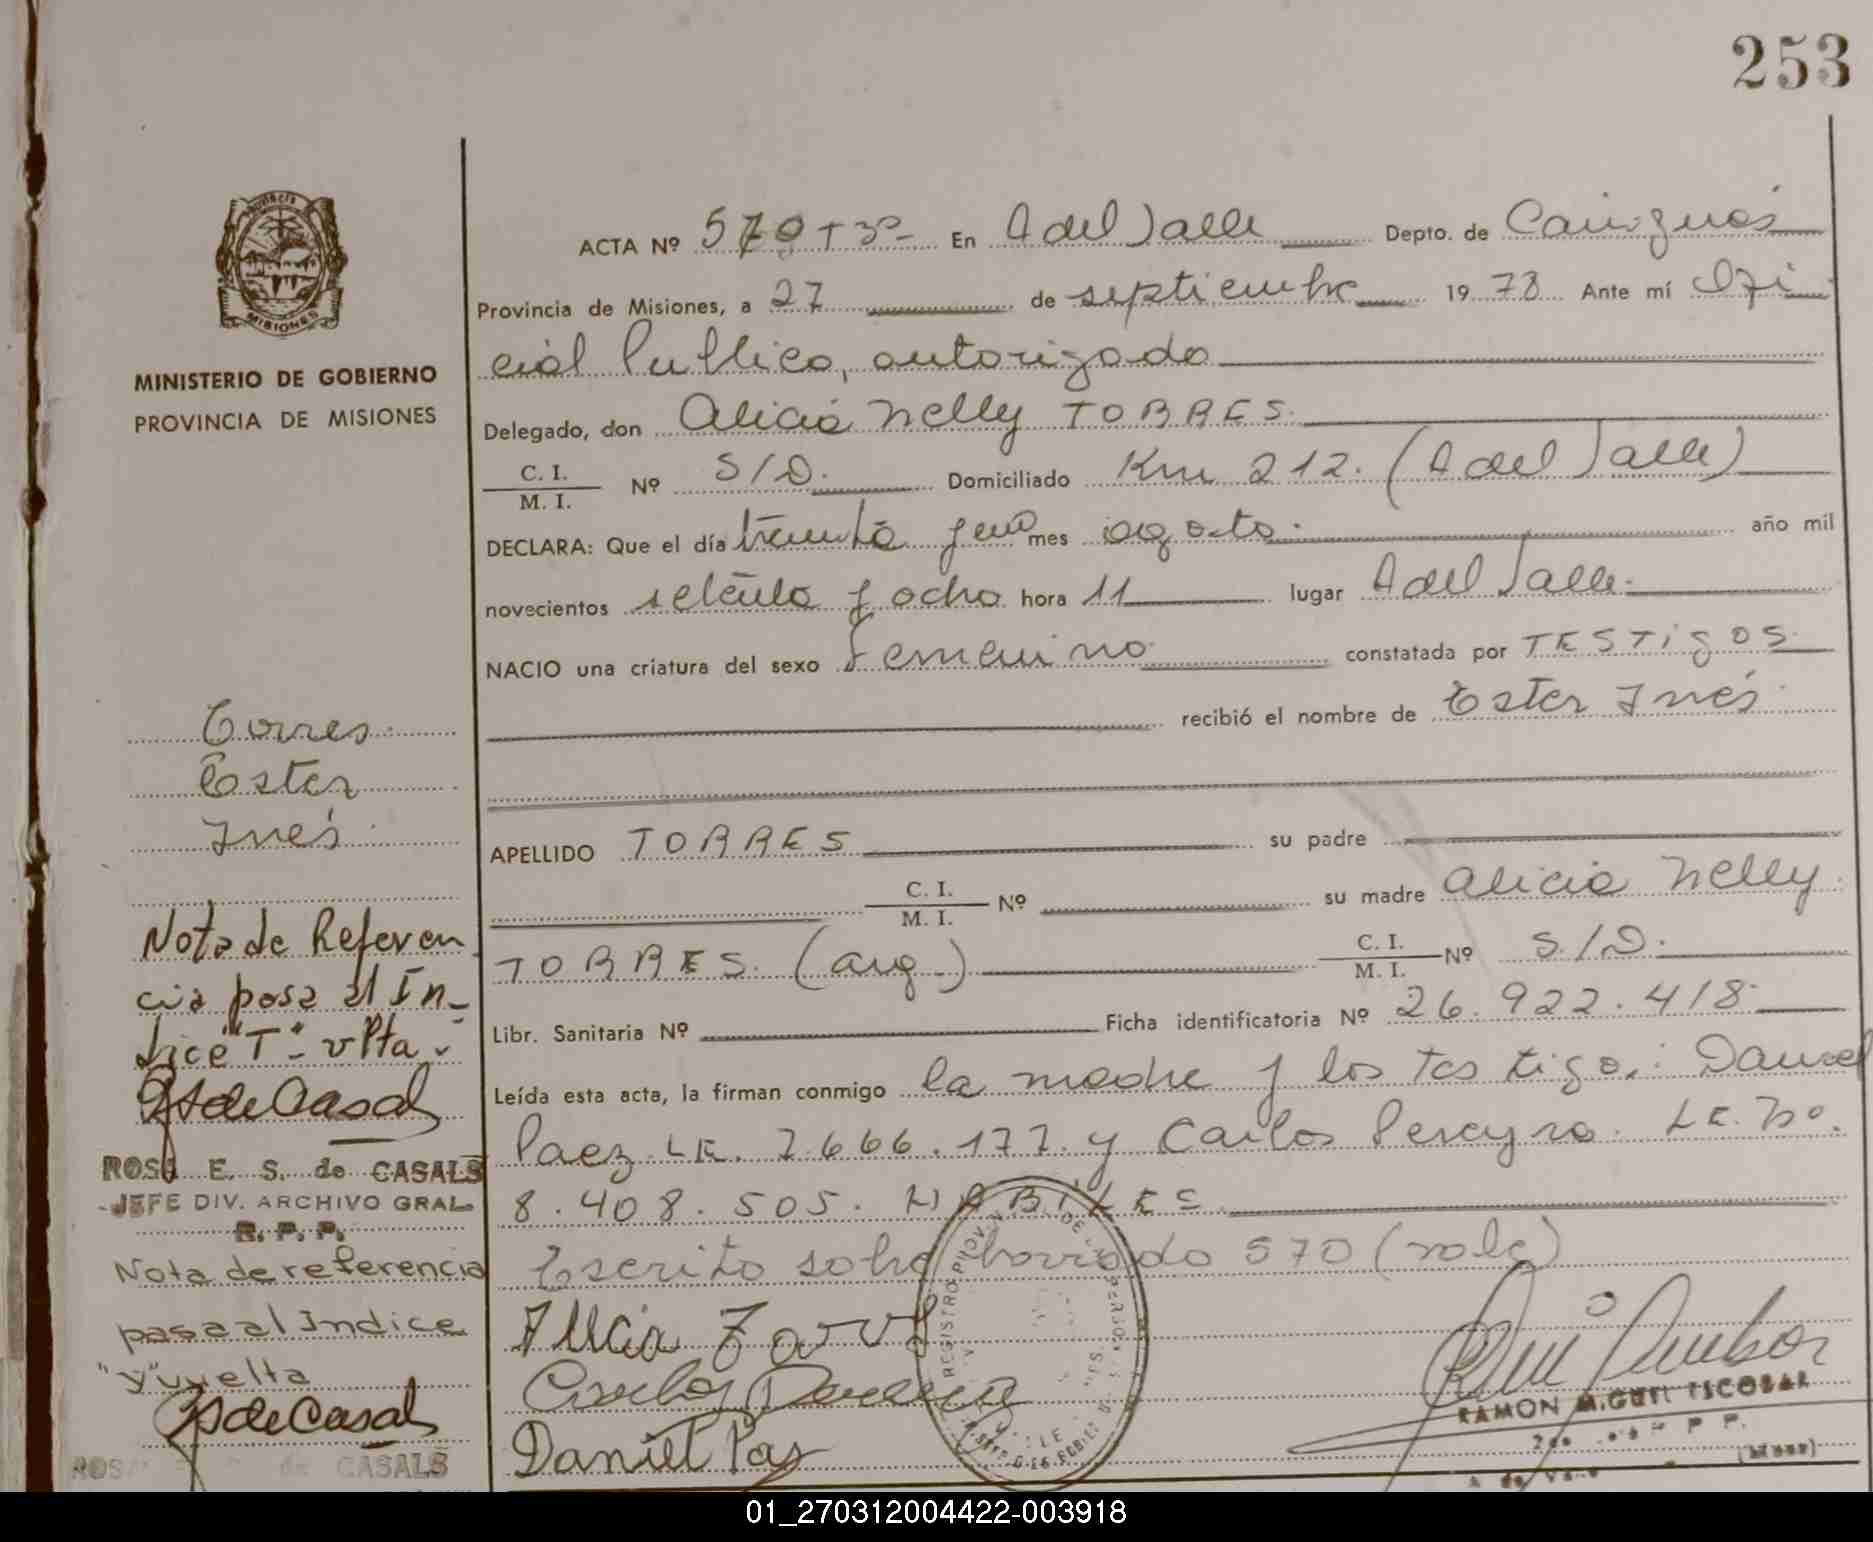 253
MISIONES
MINISTERIO DE GOBIERNO
PROVINCIA DE MISIONES
ACTA Nº 570 T 3º En A del Valle Depto. de Cainguás
Provincia de Misiones, a 27 de septiembre 1978 Ante mí Ofi
cial Publico, autorizado
Delegado, don Alicia Nelly TORRES.
C. I.
M. I. Nº S/D. Domiciliado Km 212. (A del Valle)
DECLARA: Que el día treinta y uno mes agosto. año mil
novecientos setenta y ocho hora 11 lugar A del Valle.
NACIO una criatura del sexo Femenino constatada por TESTigos
recibió el nombre de Ester Inés
APELLIDO TORRES su padre
C. I.
M. I. Nº su madre Alicia Nelly
TORRES. (arg.) C. I.
M. I. Nº S/D.
Libr. Sanitaria Nº Ficha identificatoria Nº 26.922.418
Leída esta acta, la firman conmigo la madre y los testigos: Daniel
Paez LE. 7.666.177. y Carlos Pereyra. LE. Nº.
8.408.505. HABILES
Escrito sobre borrado 570 (vale)
Carlos Pereyra
Daniel
RAMON MIGUEL ESCOBAR
Torres
Ester
Inés
Nota de Referen
cia pasa al In-
dice "T" - vlta.
de Casals
ROSA E. S. de CASALS
JEFE DIV. ARCHIVO GRAL.
R. P. P.
Nota de referencia
pasa al Indice
"Y" vuelta
de Casals
ROSA de CASALS
REGISTRO PROV. DE
01_270312004422-003918